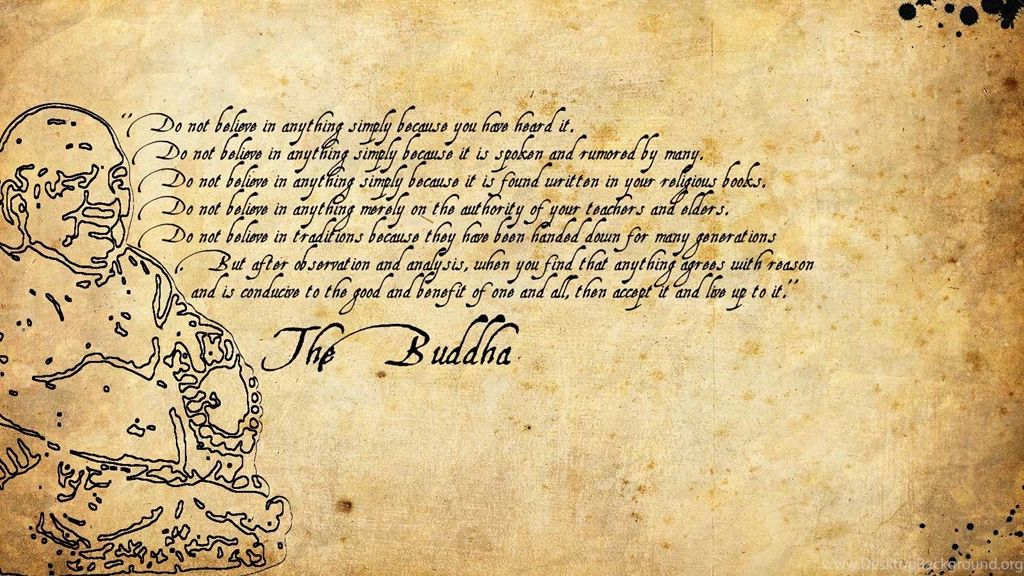 “Do not believe in anything simply because you have heard it.
Do not believe in anything simply because it is spoken and rumored by many.
Do not believe in anything simply because it is found written in your religious books.
Do not believe in anything merely on the authority of your teachers and elders.
Do not believe in traditions because they have been handed down for many generations
. But after observation and analysis, when you find that anything agrees with reason
and is conducive to the good and benefit of one and all, then accept it and live up to it.”
The Buddha
www.DesktopBackground.org